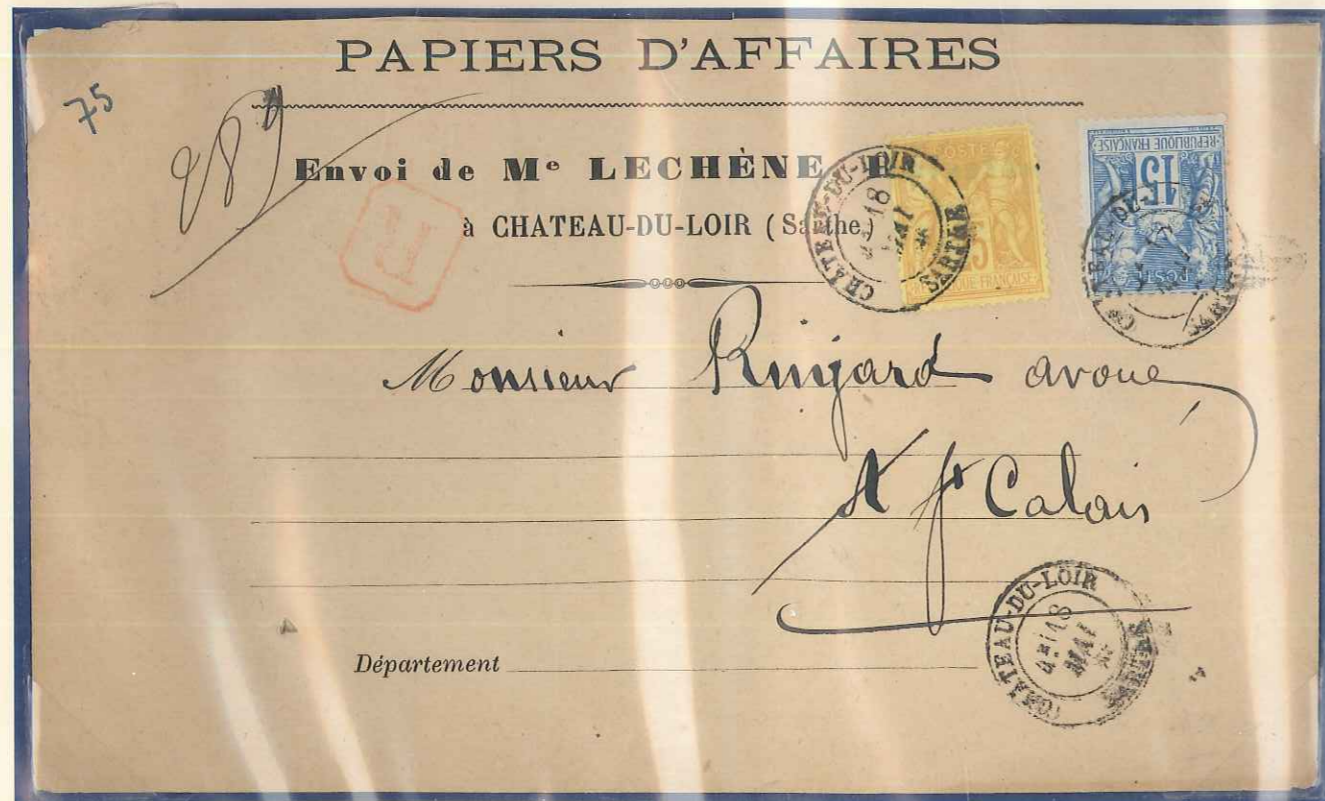 PAPIERS D'AFFAIRES
75
289
Envoi de Me LECHÈNE
à CHATEAU-DU-LOIR (Sarthe)
R
CHATEAU-DU-LOIR
18
MAI
SARTHE
POSTE
25
RÉPUBLIQUE FRANÇAISE
REPUBLIQUE FRANÇAISE
15
POSTE
Monsieur Rinjard avoué
A St Calais
CHATEAU-DU-LOIR
18
MAI
SARTHE
Département